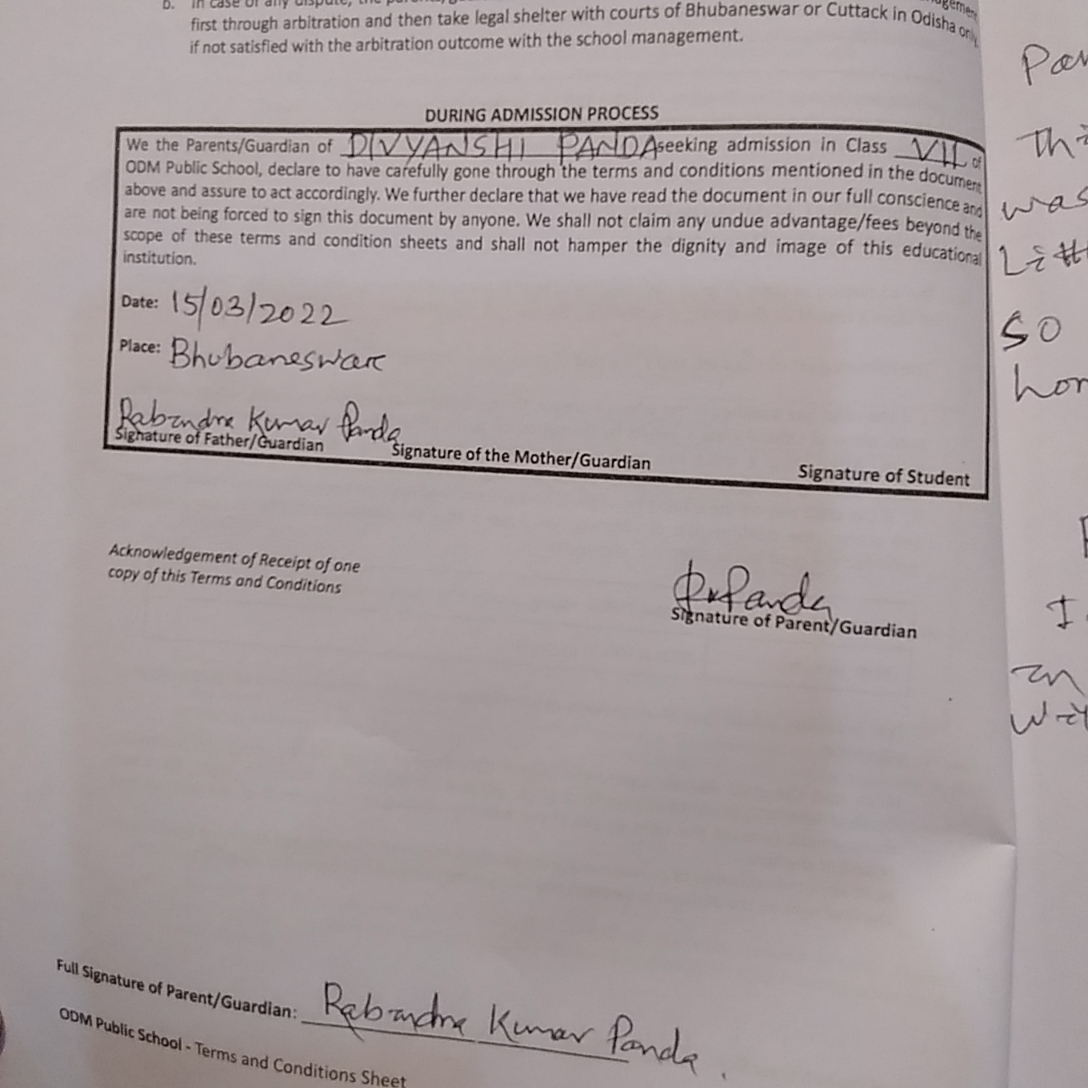 b. In case of any dispute, the
first through arbitration and then take legal shelter with courts of Bhubaneswar or Cuttack in Odisha only,
if not satisfied with the arbitration outcome with the school management.
DURING ADMISSION PROCESS
We the Parents/Guardian of DIVYANSHI PANDA seeking admission in Class VII of
ODM Public School, declare to have carefully gone through the terms and conditions mentioned in the document
above and assure to act accordingly. We further declare that we have read the document in our full conscience and
are not being forced to sign this document by anyone. We shall not claim any undue advantage/fees beyond the
scope of these terms and condition sheets and shall not hamper the dignity and image of this educational
institution.
Date: 15/03/2022
Place: Bhubaneswar
Rabindra Kumar Panda
Signature of Father/Guardian Signature of the Mother/Guardian Signature of Student
Acknowledgement of Receipt of one
copy of this Terms and Conditions
Panda
Signature of Parent/Guardian
Full Signature of Parent/Guardian: Rabindra Kumar Panda.
ODM Public School - Terms and Conditions Sheet
was
so
in